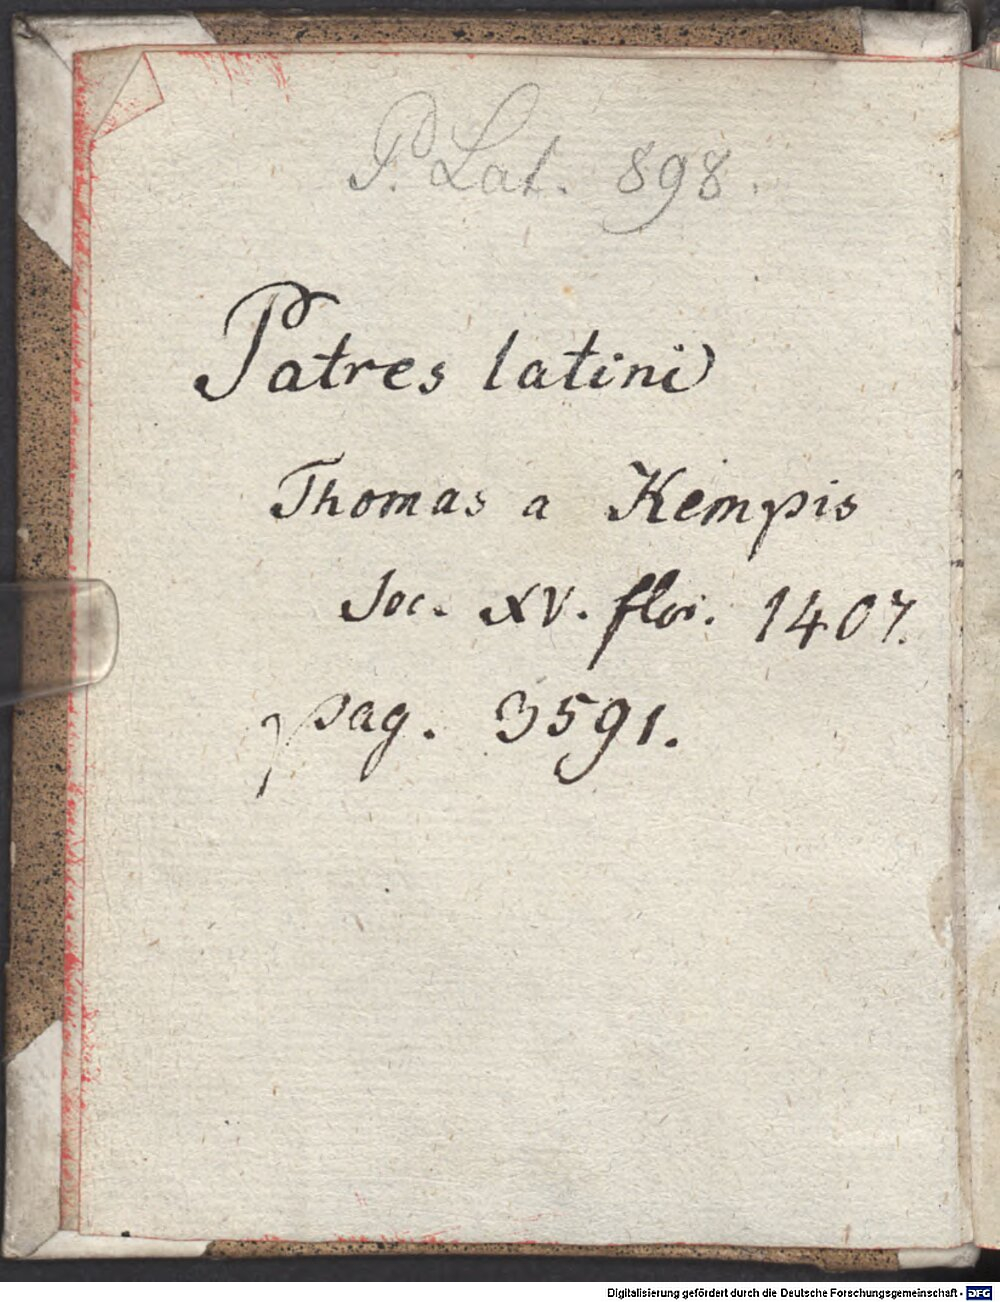 P. Lat. 898.
Patres latini
Thomas a Kempis
Soc. XV. flor. 1407.
pag. 3591.
Digitalisierung gefördert durch die Deutsche Forschungsgemeinschaft - DFG